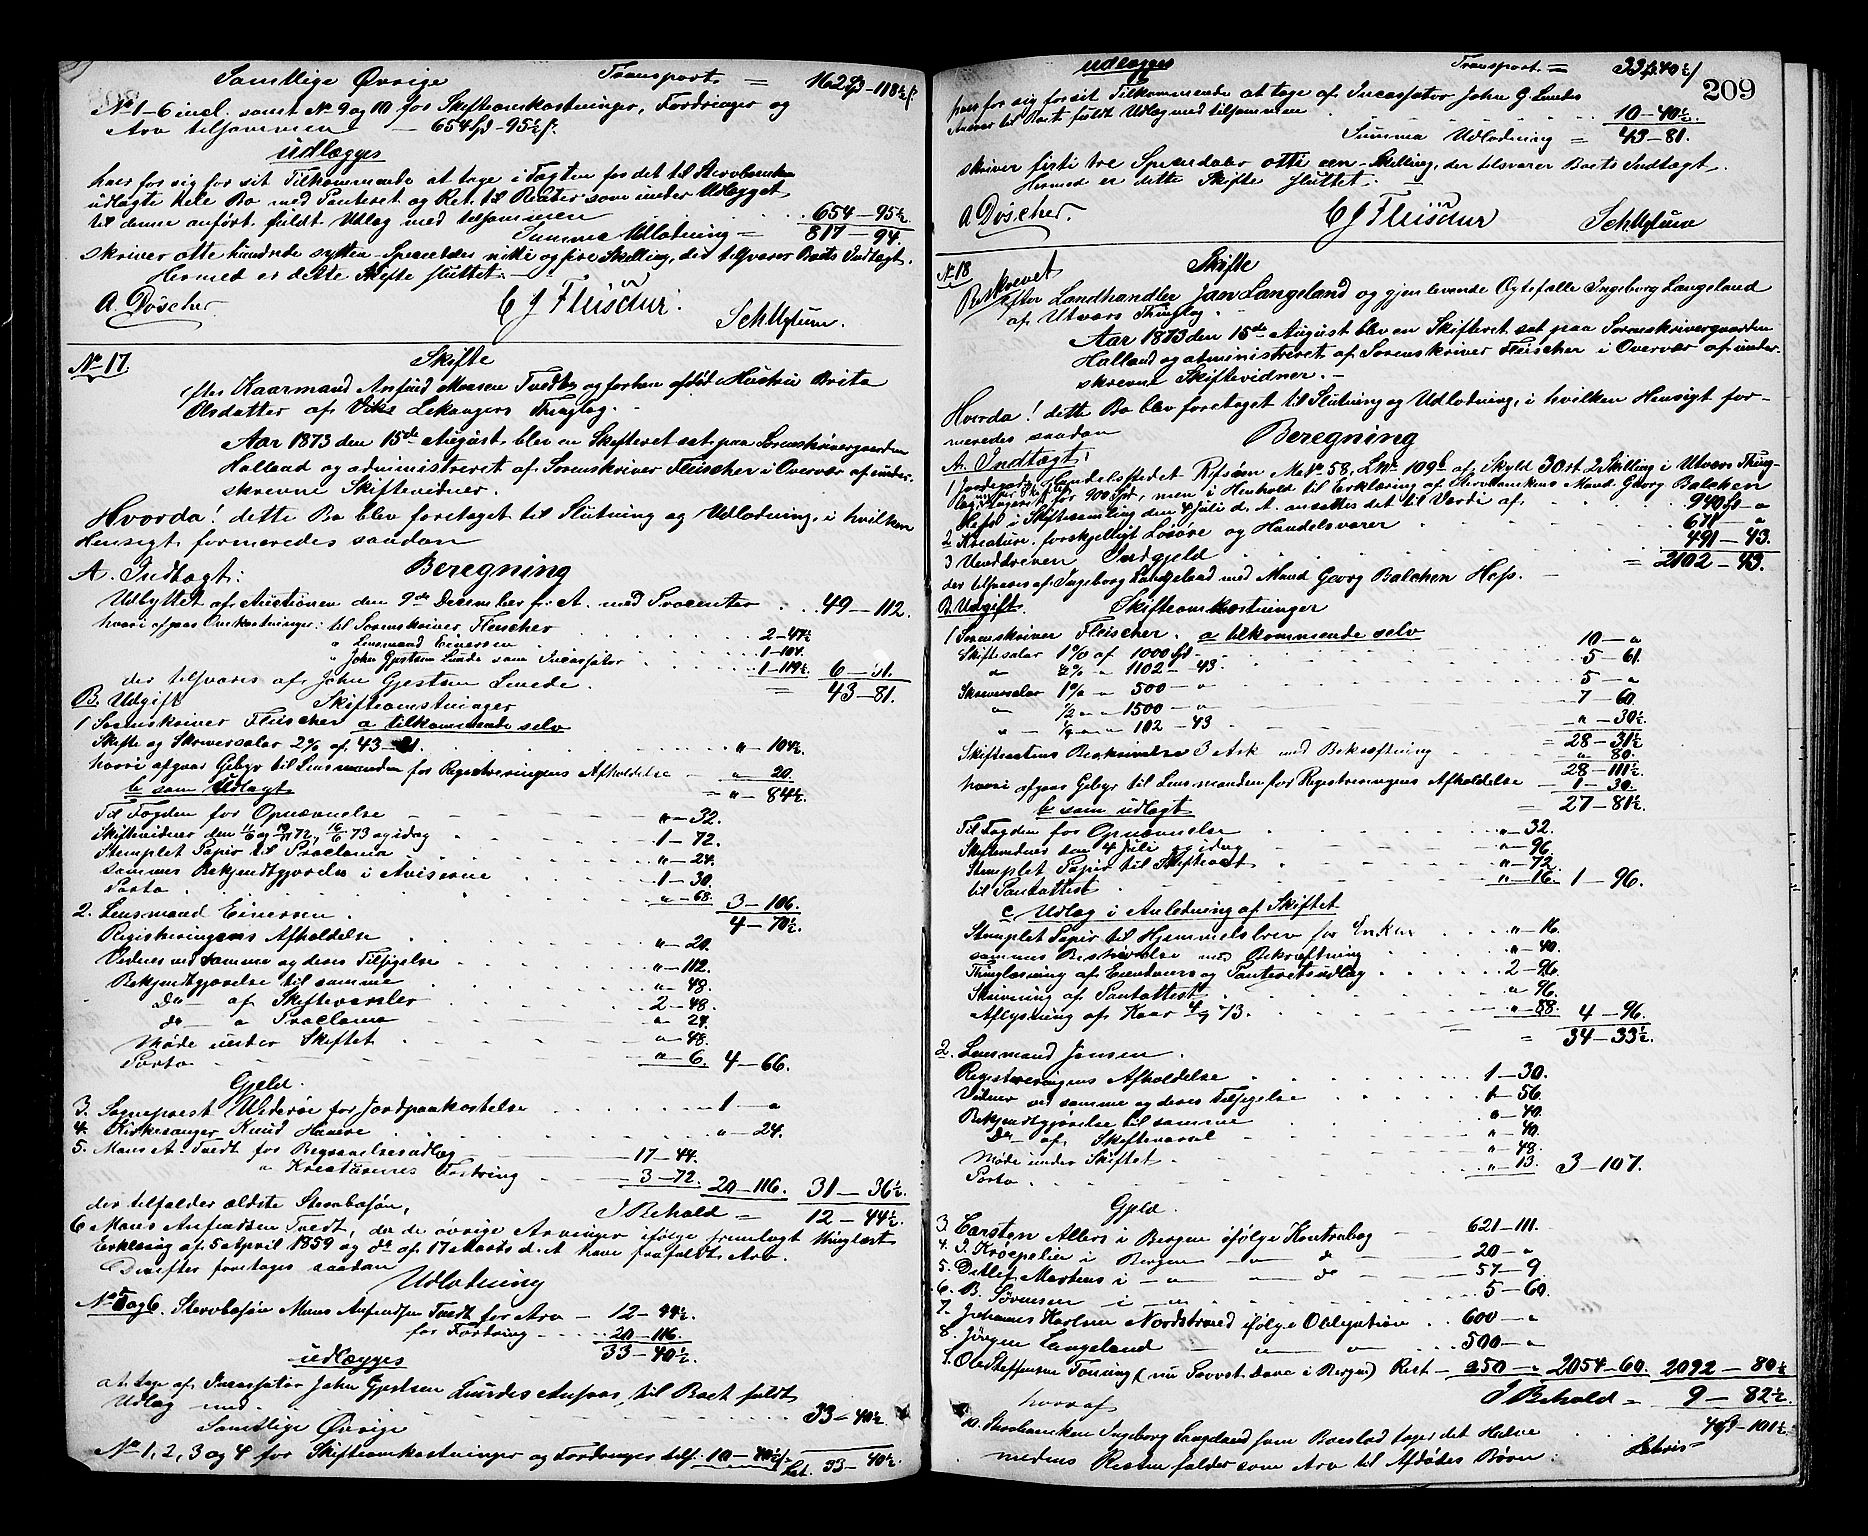 Samtlige Øvrige Transport = 162 Spd - 118½ s.
No 1-6 incl. samt No 9 og 10 for Skifteomkostninger, Fordringer og
Arv tilsammen — 654 Spd - 95½ s.
udlægges
hver for sig for sit Tilkommende at tage i Fogten for det til Stervboenken
udlagte hele Bo med Panteret og Ret til Renter som under Udlægget
til denne anført fuldt Udlæg med tilsammen . . 654 - 95½
Summa Udlodning = 817 - 94.
skriver otte hundrede sytten Speciedaler nitti og fire Skilling, der tilsvarer Boets Indtægt.
Hermed er dette Skifte sluttet. —
A. Döscher. C J Fleischer. Sch Uglum.
No 17. Skifte
efter Kaarmand Anfind Monsen Tvedt og forhen afdød Hustru Brita
Olsdatter af Viks Lekangers Thinglag. -
Aar 1873 den 15de August blev en Skifteret sat paa Sorenskrivergaarden
Halland og administreret af Sorenskriver Fleischer i Overvær af under-
skrevne Skiftevidner.
Hvorda! dette Bo blev foretaget til Slutning og Udlodning, i hvilken
Hensigt formeredes saadan
A. Indtægt: Beregning
Udbyttet af Auctionen den 9de December f. A. med Procenter . . 49 - 112.
hvori afgaar Omkostninger: til Sorenskriver Fleischer 2 - 47½
" Lensmand Einersen 1 - 104.
" John Gjestsen Lunde som Incassator 1 - 119½. 6 - 31.
der tilsvares af John Gjestsen Lunde. = 43 - 81.
B. Udgift Skifteomkostninger
1 Sorenskriver Fleischer a tilkommende selv
Skifte og Skriversalær 2% af 43 - 81. " - 104½.
hvori afgaar Gebyr til Lensmanden for Registreringens Afholdelse " - 20.
b som Udlagt = " - 84½.
Til Fogden for Opnævnelse " - 32.
Skiftevidner den 11/6 og 19/11 72, 16/6 73 og idag 1 - 72.
Stemplet Papir til Proclama " - 24.
sammes Bekjendtgjørelse i Aviserne 1 - 30.
Porto " - 68. 3 - 106.
4 - 70½.
2. Lensmand Einersen.
Registreringens Afholdelse " - 20.
Vidner ved samme og deres Tilsigelse " - 112.
Bekjendtgjørelse til samme " - 48.
Do — af Skiftevarsler 2 - 48.
do — " Proclama " - 24.
Møde under Skiftet " - 48.
Porto " - 6. 4 - 66.
Gjeld.
3. Sogneprest Widerøe for Jordpaakastelse 1 - "
4. Kirkesanger Knud Hanere " - 24.
5. Mons A. Tvedt for Begravelsesudlæg 17 - 44.
" Kreaturenes Fostring 3 - 72. 20 - 116. 31 - 36½.
der tilfalder ældste Stervbosøn, I Behold = 12 - 44½.
6 Mons Anfindsen Tvedt, da de øvrige Arvinger ifølge fremlagt thinglæst
Erklæring af 5 April 1859 og do af 17 Marts d. A. have frafaldt Arv.
Derefter foretages saadan
Udlodning
No 5 og 6. Stervbosøn Mons Anfindsen Tvedt for Arv — 12 - 44½.
for Fordring — 20 - 116.
udlægges 33 - 40½.
at tage af Incassator John Gjestsen Lundes Ansvar, til Boet fuldt
Udlæg med 33 - 40½
Samtlige Øvrige
No 1, 2, 3 og 4 for Skifteomkostninger og Fordringer tils. 10 - 40½ s. Lat. 33 - 40½.
udlægges Transport = 33 Spd 40½ s 209
hver for sig for sit Tilkommende at tage af Incassator John G. Lundes
Ansvar til Boets fuldt Udlæg med tilsammen 10 - 40½.
Summa Udlodning = 43 - 81.
skriver firti tre Speciedaler otti een Skilling, der tilsvarer Boets Indtægt.
Hermed er dette Skifte sluttet. —
A Döscher. C J Fleischer Sch Uglum
No 18 Skifte
Beskrevet
efter Landhandler Jan Langeland og gjenlevende Ægtefælle Ingeborg Langeland
af Utvær Thinglag. -
Aar 1873 den 15de August blev en Skifteret sat paa Sorenskrivergaarden
Halland og administreret af Sorenskriver Fleischer i Overvær af under-
skrevne Skiftevidner. -
Hvorda! dette Bo blev foretaget til Slutning og Udlodning, i hvilken Hensigt for-
meredes saadan Beregning
A. Indtægt:
1 Jordegods Handelsstedet M. No 58, L. No 109b af Skyld 30 rt. 2 Skilling i Utvær Thing-
lag for 900 Spd, men i Henhold til Erklæring af Stervboenkens Mand Georg Balchen
Hess i Skiftesamling den 4 Juli d. A. ansættes det til Værdi af 940 Spd - "
2 Kreature, forskjelligt Løsøre og Handelsvarer 671 - "
3 Uinddreven Indgjeld 491 - 43.
der tilsvares af Ingeborg Langeland med Mand Georg Balchen Hess. = 2102 - 43.
B. Udgift. Skifteomkostninger
1 Sorenskriver Fleischer. a tilkommende selv
Skiftesalær 1% af 1000 Spd 10 - "
" ½% " 1102 - 43 5 - 61.
Skriversalær 1% " 500 - " 5 - "
" ½ " " 1500 - " 7 - 60.
" ¼ " " 102 - 43 " - 30½.
= 28 - 31½
Skifteactens Beskrivelse 3 Ark med Bekræftning " 80.
28 - 111½.
hvori afgaar Gebyr til Lensmanden for Registreringens Afholdelse 1 - 30.
b som udlagt = 27 - 81½.
Til Fogden for Opnævnelse " - 32.
Skiftevidner den 4 Juli og idag " - 96.
Stemplet Papir til Skifteact " - 72
til Pantattest " - 16. 1 - 96.
c Udlæg i Anledning af Skiftet
Stemplet Papir til Hjemmelsbrev for Enken " - 16.
sammes Beskrivelse med Bekræftning " - 40.
Thinglæsning af Eiendoms og Panteretsudlæg 2 - 96.
Skrivning af Pantattest " 96.
Aflysning af Kaar 4/7 73. " - 88. 4 - 96.
= 34 - 33½
2. Lensmand Jensen.
Registreringens Afholdelse 1 - 30.
Vidner ved samme og deres Tilsigelse 1 - 56.
Bekjendtgjørelse til samme " - 40.
Do — af Skiftevarsel " - 40.
Møde under Skiftet " - 48.
Porto " - 13. 3 - 107.
Gjeld.
3. Carsten Allers i Bergen ifølge Kontrabog 621 - 111.
4. I. Krøepelien i Bergen — " do 20 - "
5. Detlef Martens i — " — " do 57 - 9
6. B. Sørensen i — " 5 - 60.
7. Johannes Karlsen Nordstrand ifølge Obligation 600 - "
8. Jørgen Langeland " " 500 - "
9. Ole Steffensen Tonning (nu Provst Dave i Bergen) Rest — 250 - " 2054 - 60. 2092 - 80½
I Behold = 9 - 82½.
hvoraf
10. Stervboenken Ingeborg Langeland som Boeslod tager det Halve 4 Spd - 101½
medens Resten falder som Arv til Afdødes Børn: Latvis =